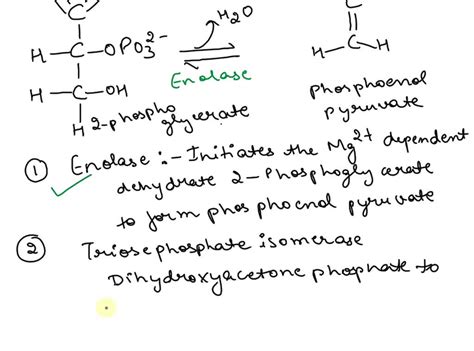 H2O
H-C-OPO3 2-
Enolase
H-C-OH
H
C
H-C-H
2-phospho glycerate
phosphoenol
pyruvate
① Enolase :- Initiates the Mg2+ dependent
dehydrate 2-Phosphoglycerate
to form phosphoenol pyruvate
② Triosephosphate isomerase
Dihydroxyacetone phosphate to